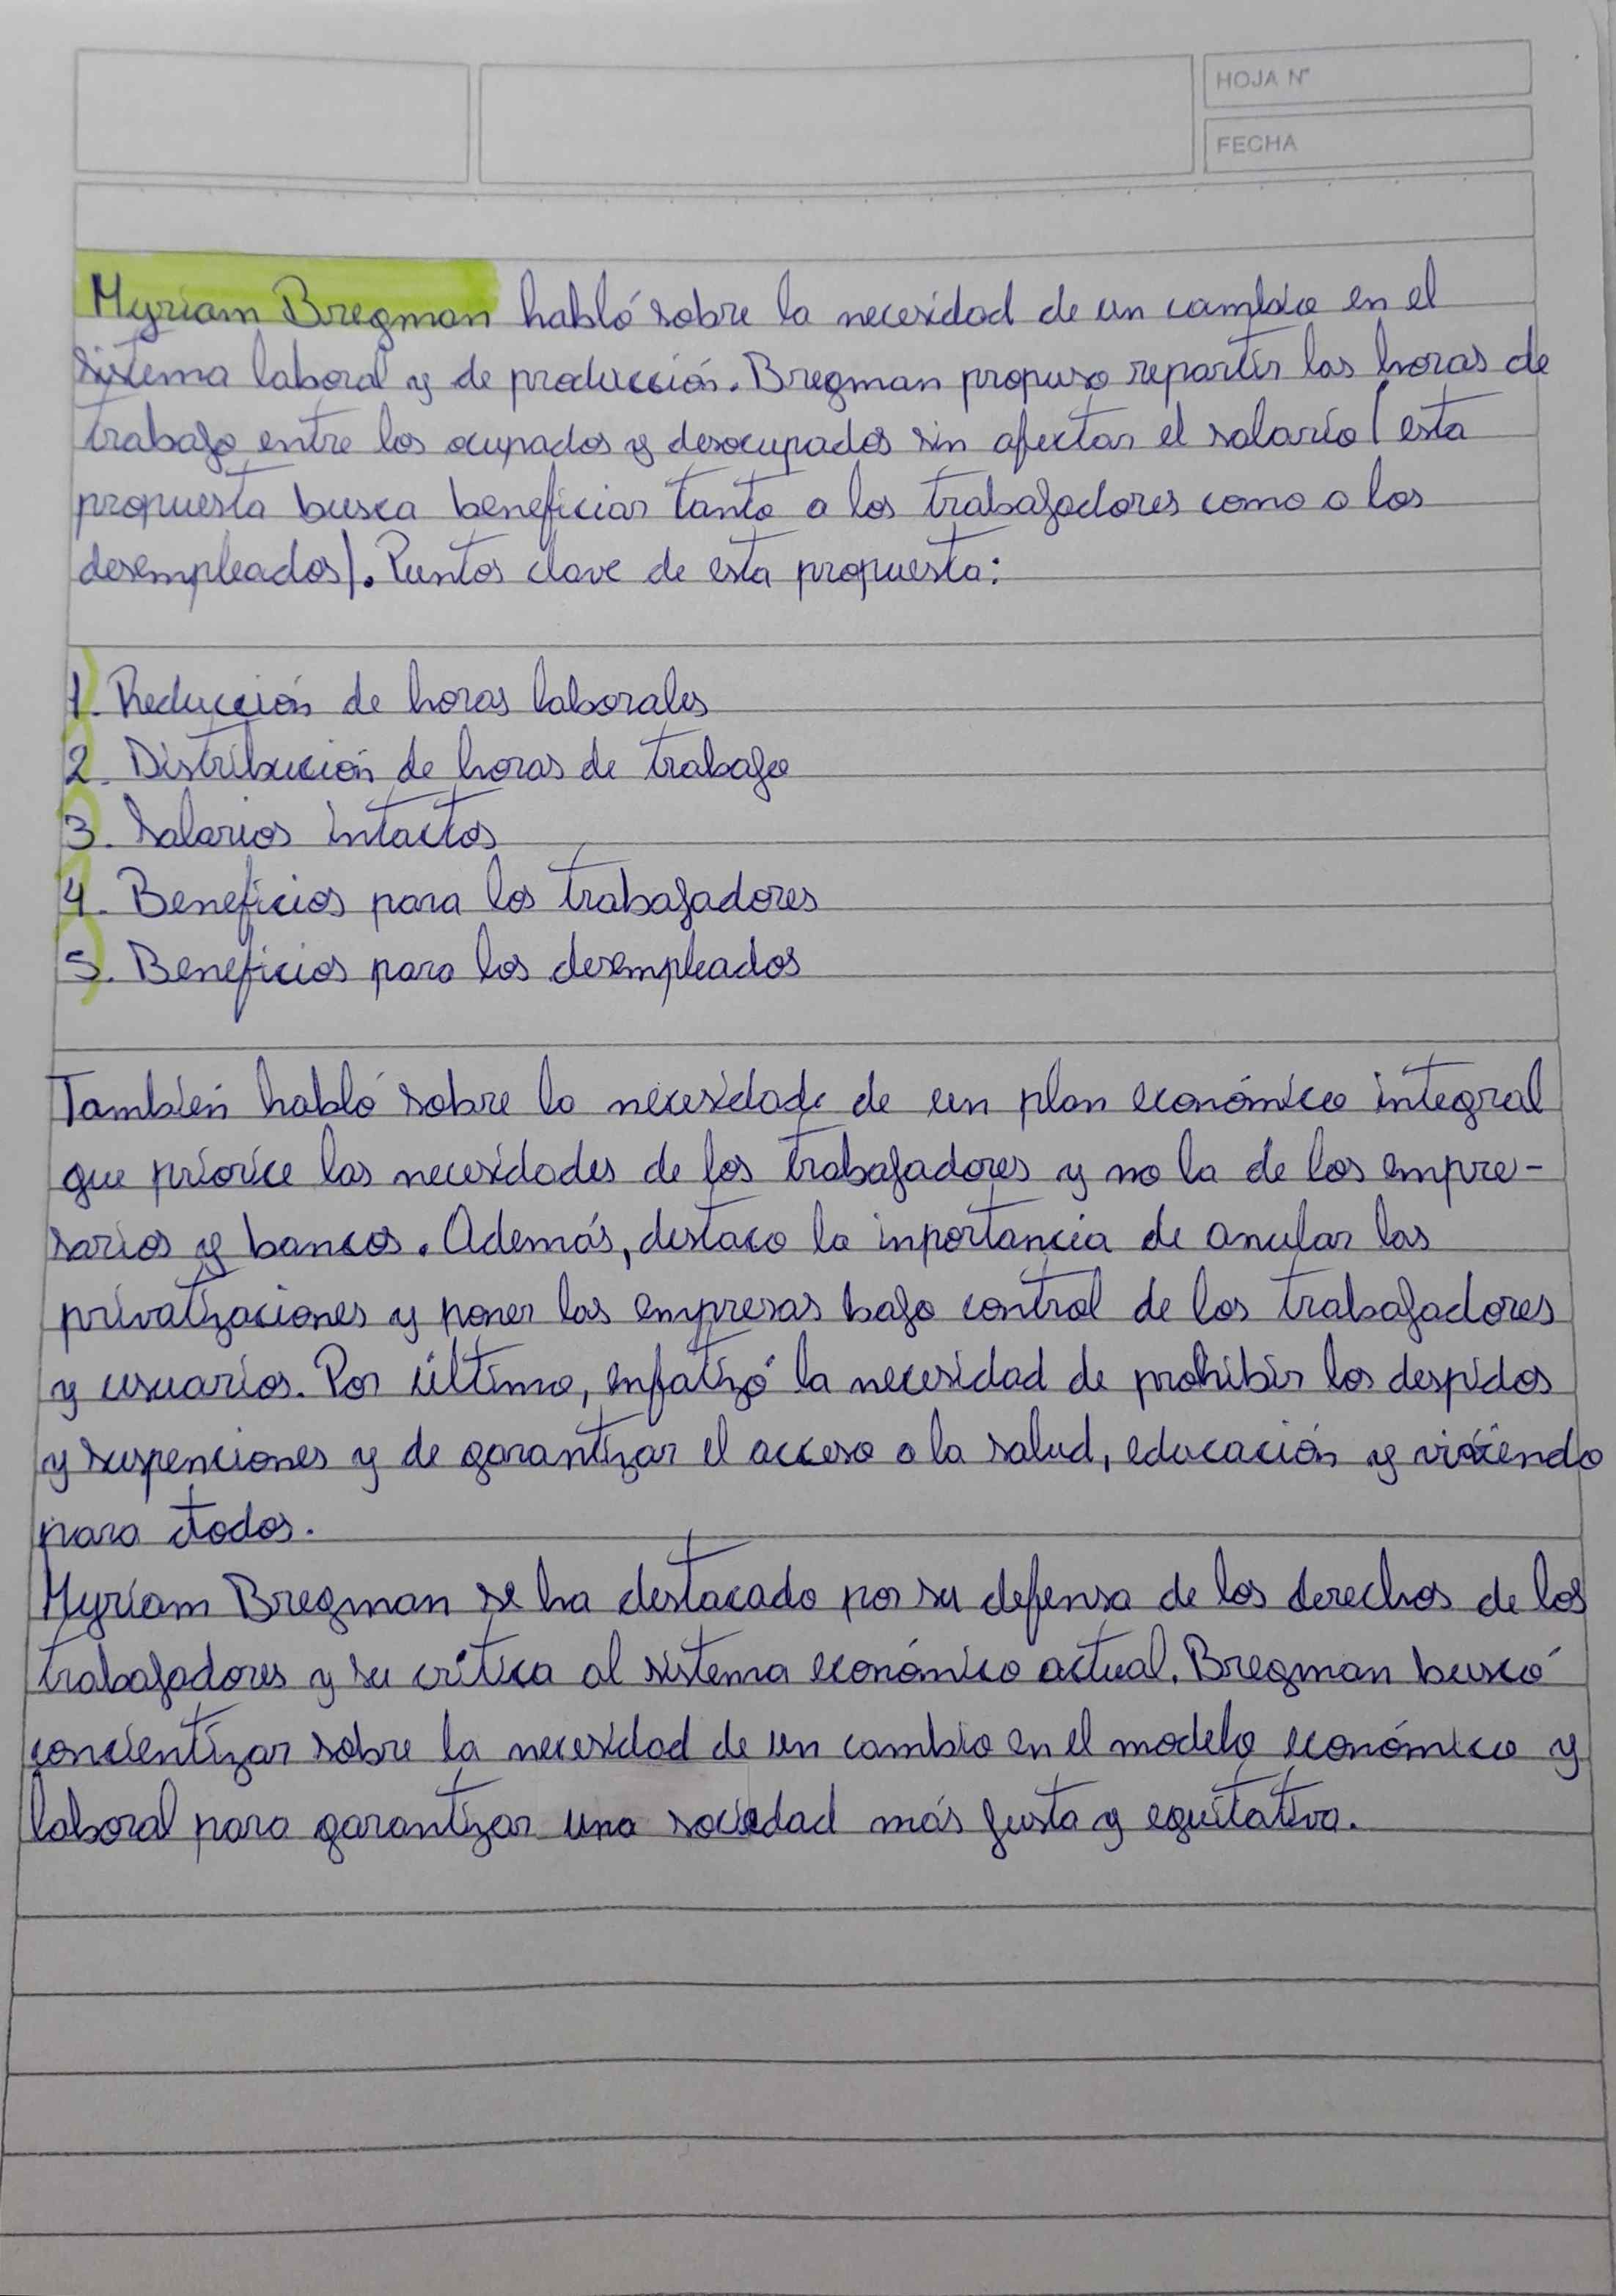 HOJA N°
FECHA
Myriam Bregman habló sobre la necesidad de un cambio en el
sistema laboral y de producción. Bregman propuso repartir las horas de
trabajo entre los ocupados y desocupados sin afectar el salario (esta
propuesta busca beneficiar tanto a los trabajadores como a los
desempleados). Puntos clave de esta propuesta:
1. Reducción de horas laborales
2. Distribución de horas de trabajo
3. Salarios intactos
4. Beneficios para los trabajadores
5. Beneficios para los desempleados
También habló sobre la necesidad de un plan económico integral
que priorice las necesidades de los trabajadores y no la de los empre-
sarios y bancos. Además, destaco la inportancia de anular las
privatizaciones y poner las empresas bajo control de los trabajadores
y usuarios. Por último, enfatizó la necesidad de prohibir los despidos
y suspenciones y de garantizar el acceso a la salud, educación y vivienda
para todos.
Myriam Bregman se ha destacado por su defensa de los derechos de los
trabajadores y su crítica al sistema económico actual. Bregman buscó
concientizar sobre la necesidad de un cambio en el modelo económico y
laboral para garantizar una sociedad más justa y equitativa.